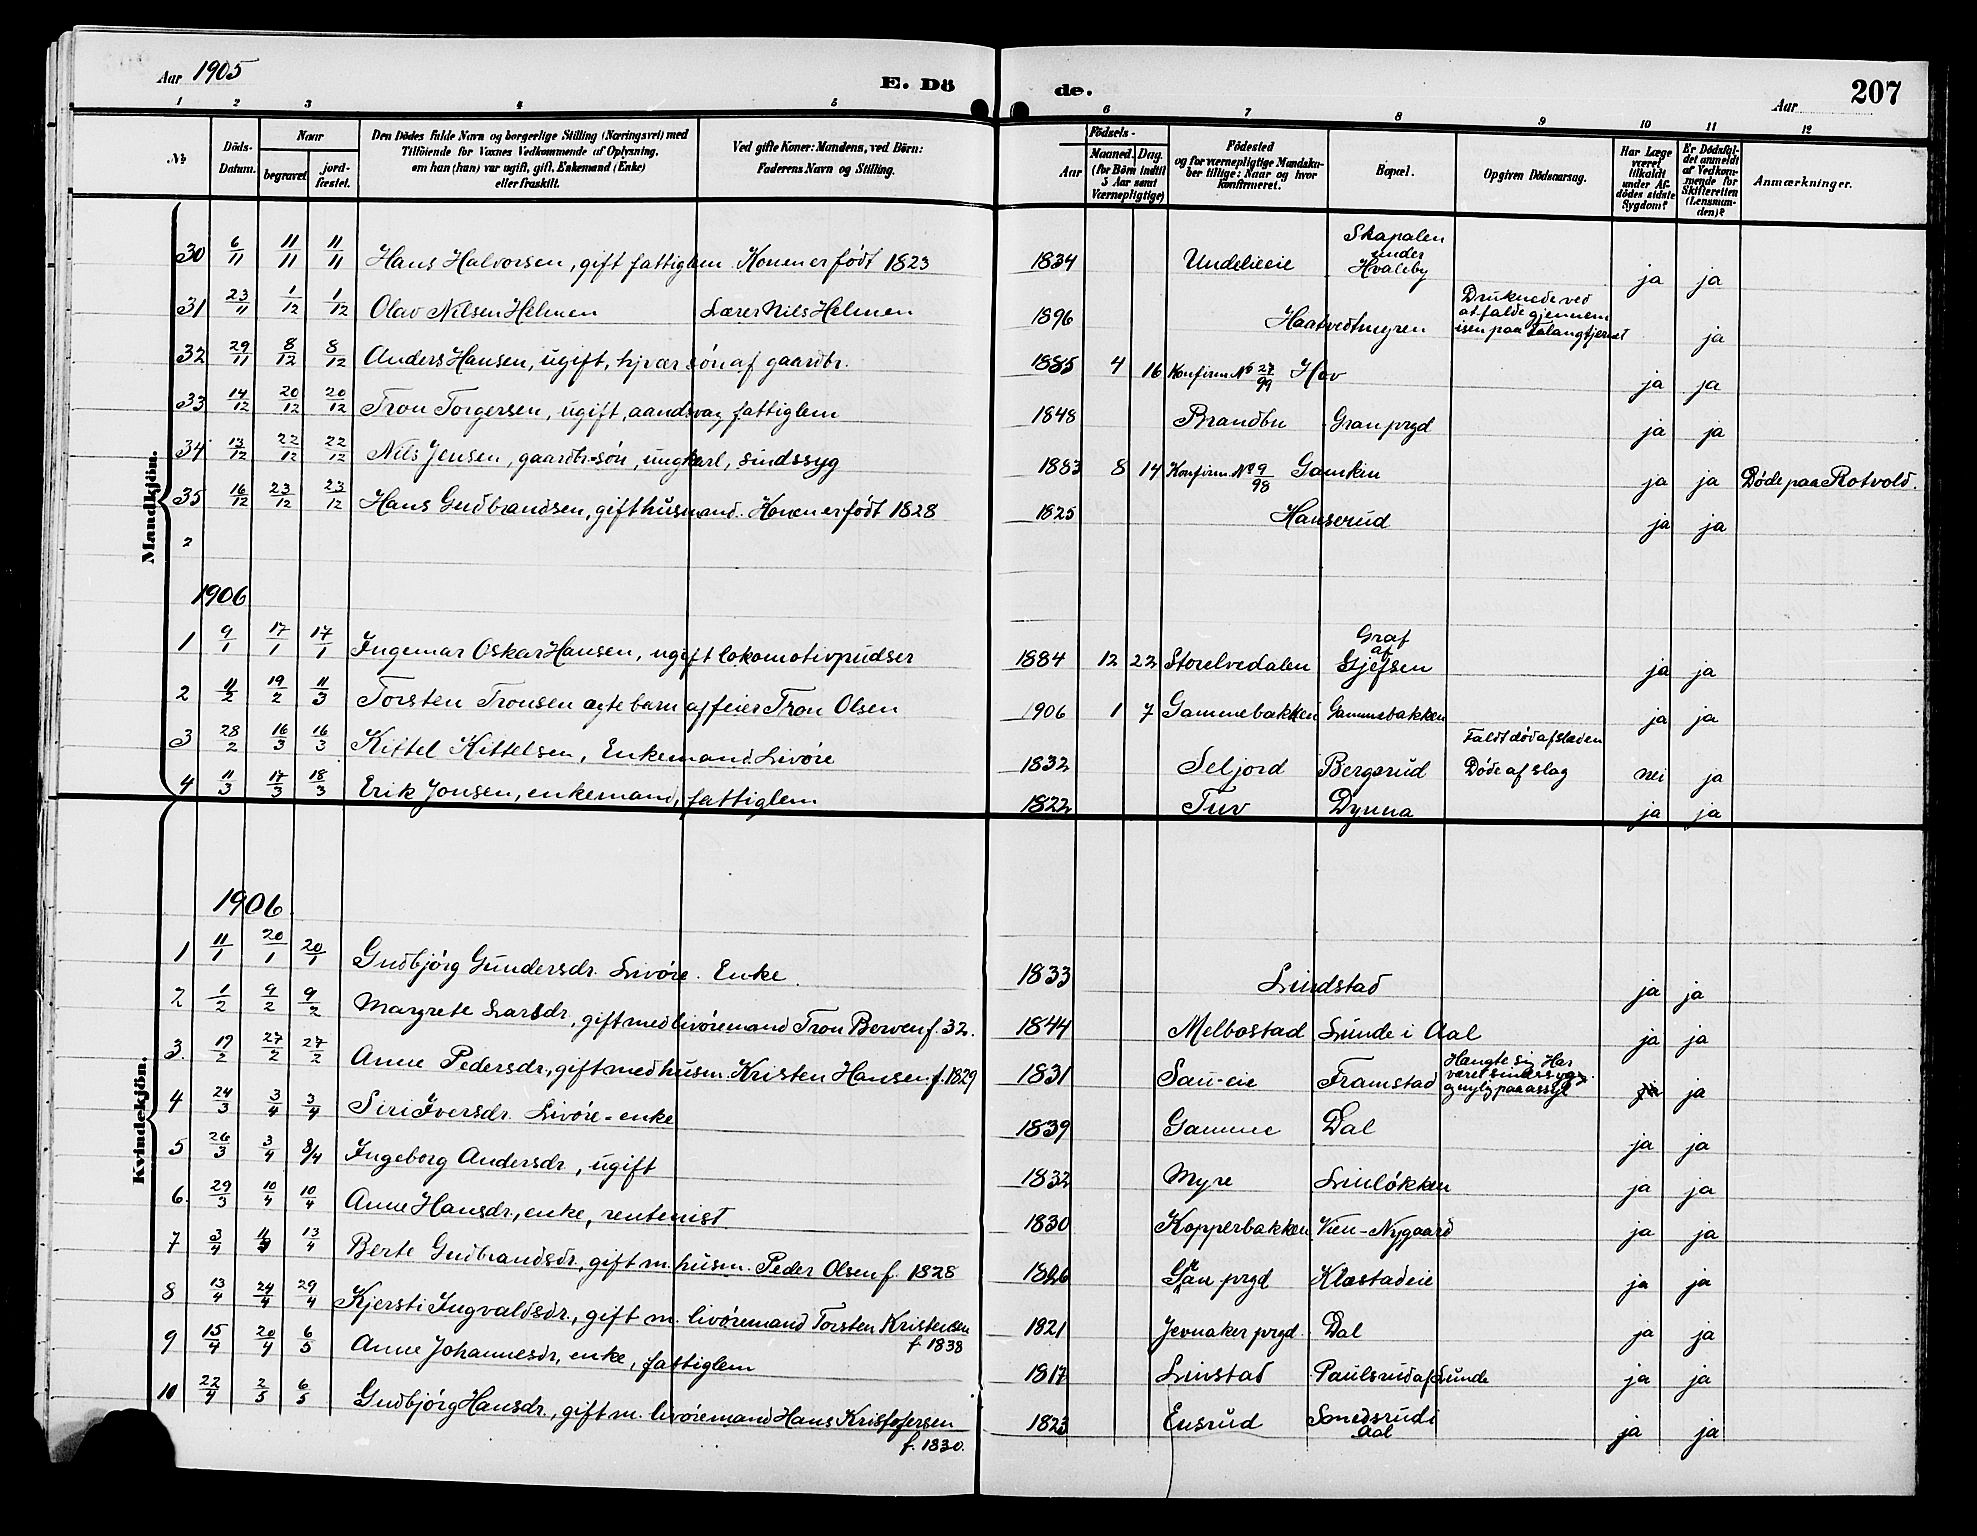 Aar 1905
E. Dö de.
Aar
207
1 2 3 4 5 6 7 8 9 10 11 12
No.
Döds-Datum.
Naar
begravet
jord-fæstet.
Den Dödes fulde Navn og borgerlige Stilling (Næringsvei) med
Tilföiende for Voxnes Vedkommende af Oplysning,
om han (hun) var ugift, gift, Enkemand (Enke)
eller fraskilt.
Ved gifte Koner: Mandens, ved Börn:
Faderens Navn og Stilling.
Födsels-
Aar
Maaned. Dag.
(for Börn indtil
5 Aar samt
Værnepligtige)
Födested
og for værnepligtige Mandska-
ber tillige: Naar og hvor
konfirmeret.
Bopæl.
Opgiven Dödsaarsag.
Har Læge
været
tilkaldt
under Af-
dödes sidste
Sygdom?
Er Dödsfal-
det anmeldt
af Vedkom-
mende for
Skifteretten
(Lensman-
den)?
Anmærkninger.
Mandkjön.
30 6/11 11/11 11/11 Hans Halvorsen, gift fattiglem. Konen er født 1823 1834 Undelieeie Skapalen under Hvaleby ja ja
31 23/11 1/12 1/12 Olav Nilsen Helmen Lærer Nils Helmen 1896 Haatvedtmyren Druknede ved at falde gjennem isen paa ja
32 29/11 8/12 8/12 Anders Hansen, ugift, hj.vær. søn af gaardbr. 1885 4 16 Konfirm. No 27/99 Hov ja ja
33 14/12 20/12 20/12 Tron Torgersen, ugift, aandsvag, fattiglem 1848 Brandbu Gran prgd ja ja
34 13/12 22/12 22/12 Nils Jensen, gaardbr.-søn, ungkarl, sindssyg 1883 8 14 Konfirm. No 9/98 Gamkin ja ja Døde paa Rotvold.
35 16/12 23/12 23/12 Hans Gudbrandsen, gift husmand. Konen er født 1828 1825 Hanserud ja ja
2
1906
1 9/1 17/1 17/1 Ingemar Oskar Hansen, ugift lokomotivpudser 1884 12 22 Storelvedalen Graf af Gjefsen ja ja
2 11/2 19/2 11/3 Torsten Tronsen ægte barn af feier Tron Olsen 1906 1 7 Gammebakken Gammebakken ja ja
3 28/2 16/3 16/3 Kittel Kittelsen, Enkemand. Livøre 1832 Seljord Bergerud Faldt død af slæden Døde af slag nei ja
4 11/3 17/3 18/3 Erik Jonsen, enkemand, fattiglem 1822 Tuv Dynna ja ja
Kvindekjön.
1906
1 11/1 20/1 20/1 Gudbjørg Gundersdr. Livøre. Enke. 1833 Lindstad ja ja
2 1/2 9/2 9/2 Margrete Larsdr, gift med livøremand Tron Berven f. 32. 1844 Melbostad Lunde i Aal ja ja
3. 19/2 27/2 27/2 Anne Pedersdr, gift med husm. Kristen Hansen f. 1829 1831 Sau-eie Framstad Hængte sig. Har været sindssyg og nylig paa asyl ja
4 24/3 3/4 3/4 Siri Iversdr. Livøre-enke 1839 Gamme Dal ja ja
5 26/3 3/4 8/4 Ingeborg Andersdr, ugift 1832 Myre Linløkken ja ja
6. 29/3 10/4 10/4 Anne Hansdr., enke, rentenist 1830 Kopperbakken Vien-Nygaard ja ja
7 3/4 13/4 Berte Gudbrandsdr., gift m. husm. Peder Olsen f. 1828 1826 Gran prgd Klæstadeie ja ja
8 13/4 24/4 29/4 Kjersti Ingvaldsdr., gift m. livøremand Torsten Kristensen f. 1838 1821 Jevnaker prgd. Dal ja ja
9 15/4 20/4 6/5 Anne Johannesdr, enke, fattiglem 1817 Linstad Paulsrud af Lunde ja ja
10 22/4 2/5 6/5 Gudbjørg Hansdr., gift m. livøremand Hans Kristofersen f. 1830. 1823 Ensrud Smedsrud i Aal ja ja